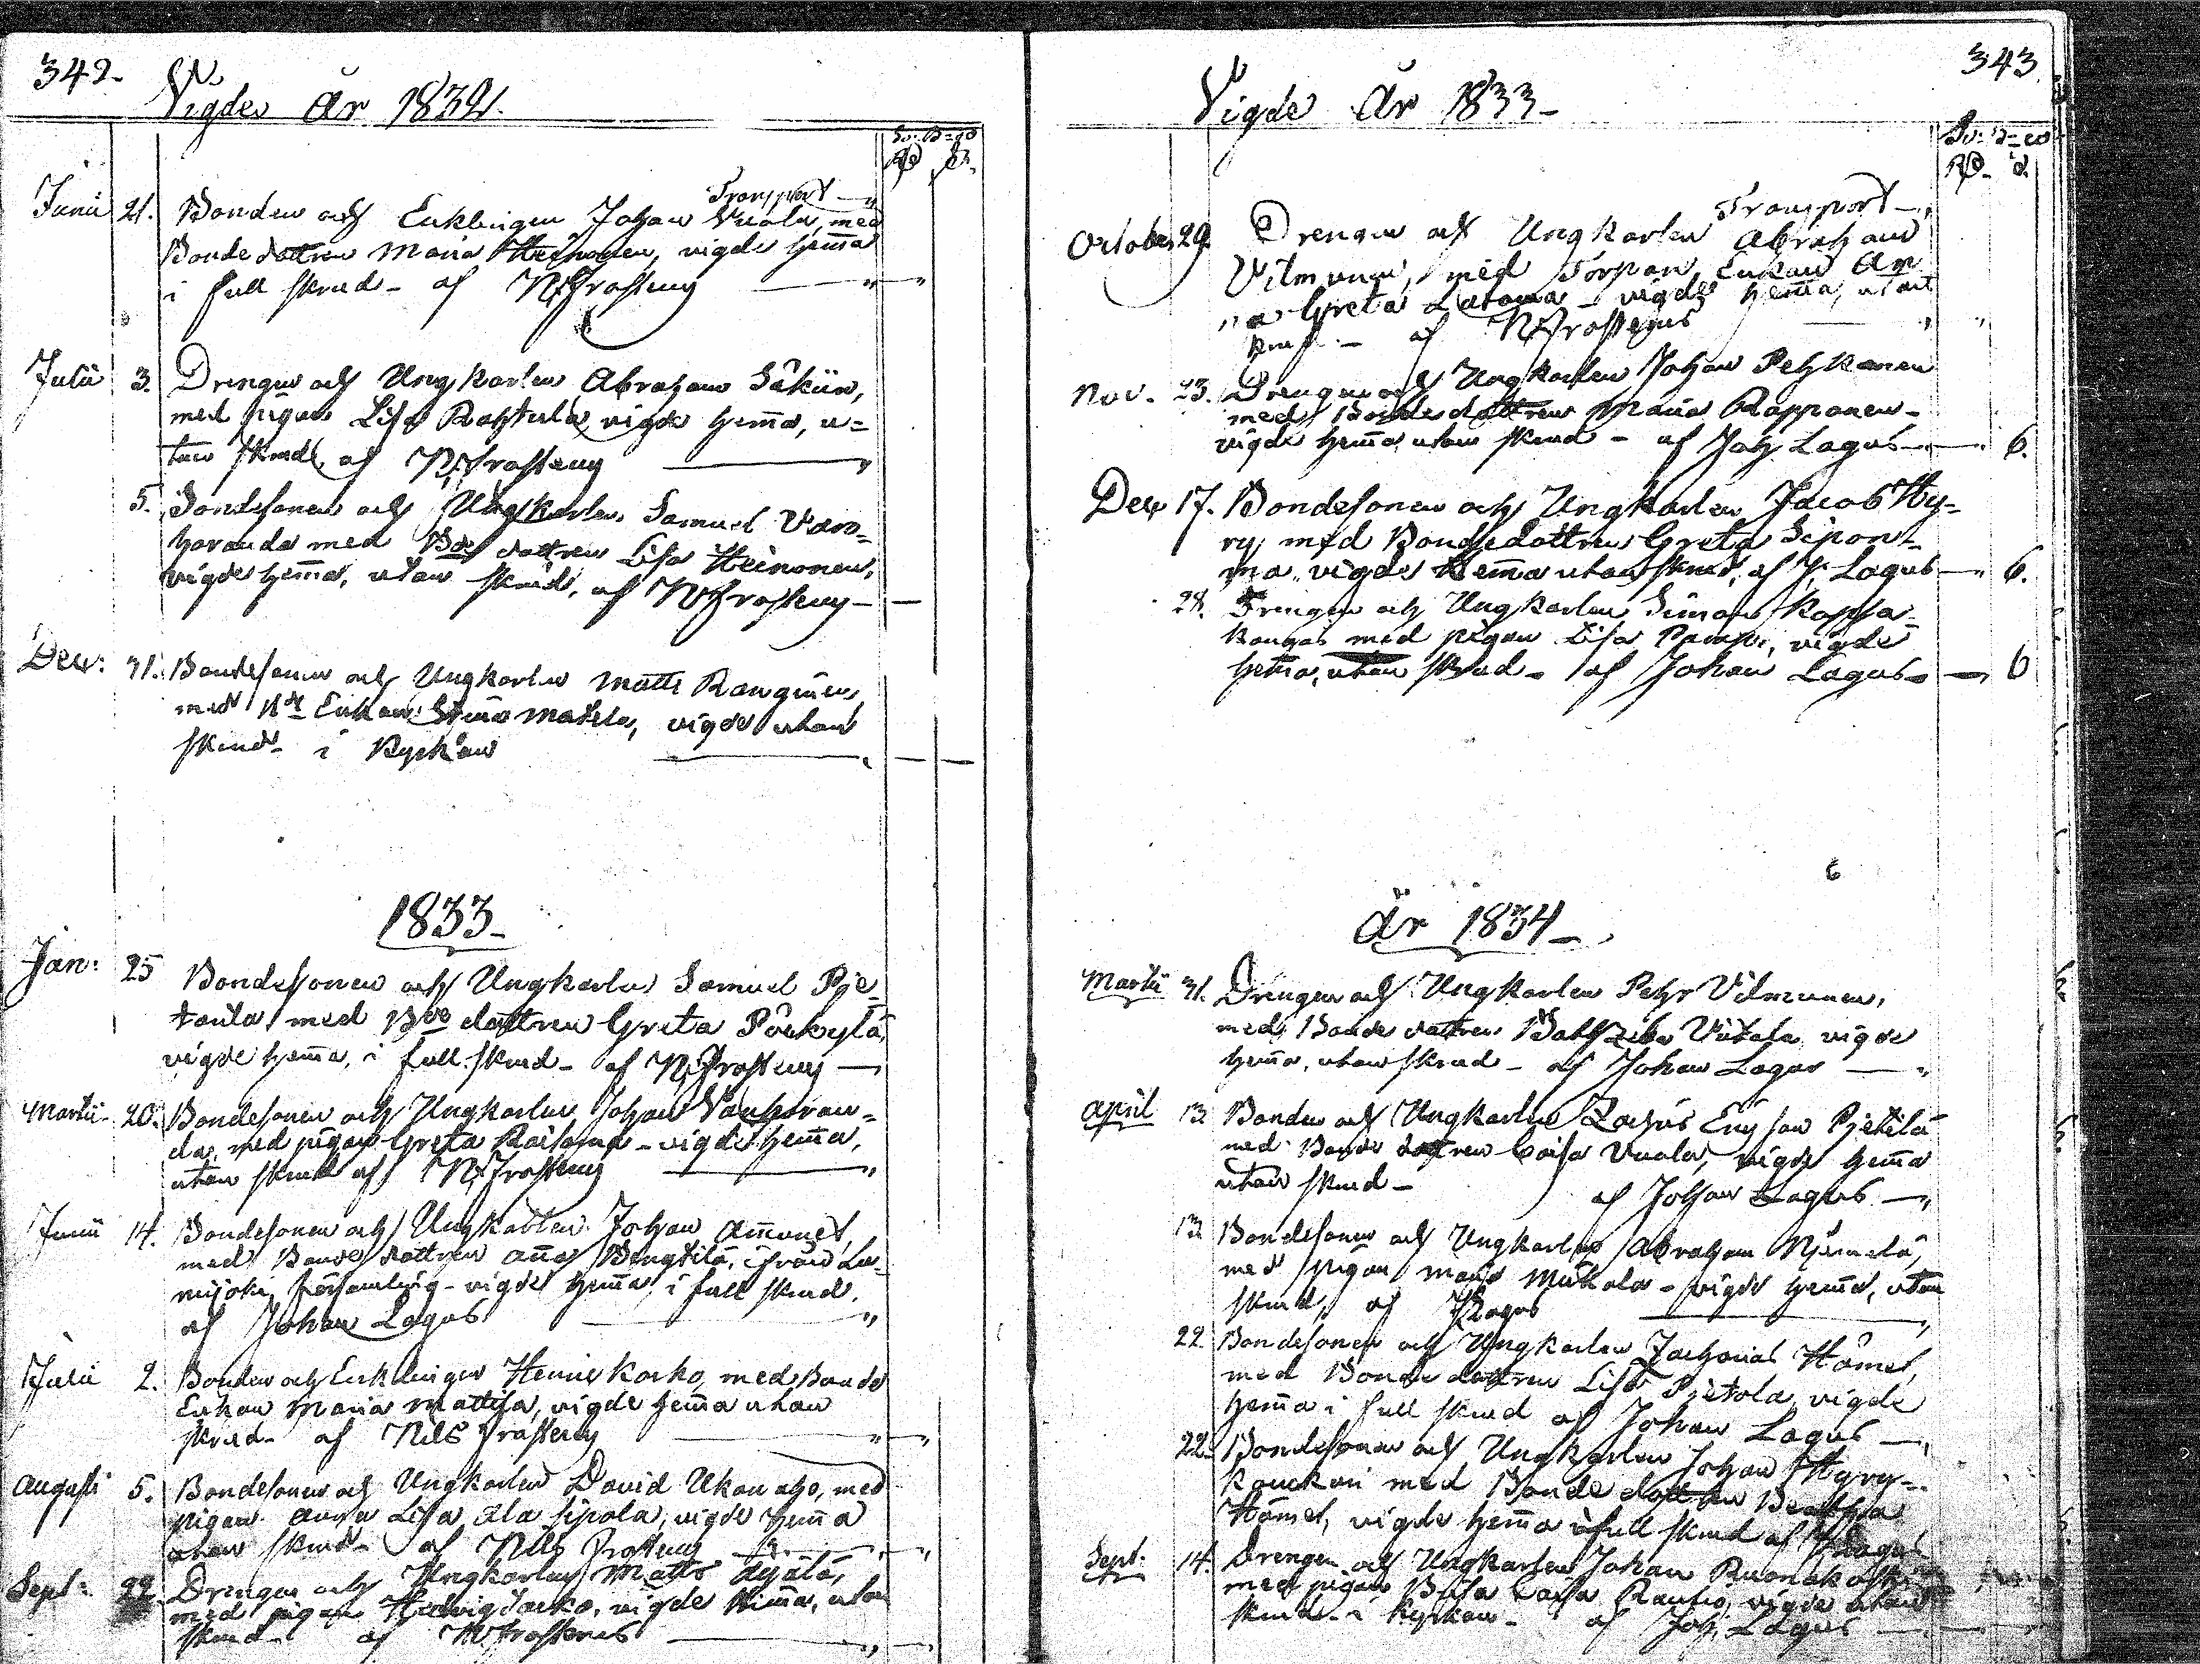 342.
Vigde År 1832.
Sv: B=co
Rd S.
Transport
Junii 21. Bonden och Enklingen Johan Vuala, med
Bonde dottren Maria Heinonen, vigde hem̄a
i full skrud - af N. Frosterus
Julii 3. Drengen och Ungkarlen Abraham Säkiin,
med pigan Lisa Rahtula, vigde hem̄a, u=
tan skrud, af N. Frosterus
5. Bondesonen och Ungkarlen Samuel Van=
haranda med Bde dottren Lisa Heinonen,
vigde hem̄a, utan skrud, af N. Frosterus -
Dec: 31. Bondesonen och Ungkarlen Matts Ranginen,
med Enkan Matila, vigde utan
skrud - i Kyrkan
1833 -
Jan: 25 Bondesonen och Ungkarlen Samuel Pje=
tarila, med Bde dottren Greta Pöckylä,
vigde hem̄a, i full skrud - af N. Frosterus
Martii 20. Bondesonen och Ungkarlen Johan Vanharan=
da, med pigan Greta Raisama - vigde hem̄a,
utan skrud af N. Frosterus
Junii 14. Bondesonen och Ungkarlen Johan Am̄onet,
med Bonde dottren An̄a Bengtilä, ifrån Lu=
mijoki församling - vigde hem̄a, i full skrud,
af Johan Lagus
Julii 2. Bonden och Enklingen Henric Karko, med Bonde
Enkan Maria Mattila, vigde hem̄a utan
skrud - af Nils Frosterus
Augusti 5. Bondesonen och Ungkarlen David Ukonaho, med
pigan Anna Lisa Ala Sipola, vigde hem̄a
utan skrud - af Nils Frosterus
Sept: 22. Drengen och Ungkarlen Matts
med pigan Hedvig Karko, vigde hemma, utan
skrud - af N Frosterus
343
Vigde År 1833 -
Sv: B=co
Rd. S.
Transport
October 29. Drengen och Ungkarlen Abraham
Vilmunen, med Torpar Enkan An=
na Greta Latoma - vigde hem̄a, utan
skrud - af N. Frosterus
Nov. 23. Drengen och Ungkarlen Johan Pehkonen
med Bonde dottren Maria Rapponen -
vigde hem̄a utan skrud - af Joh Lagus 6.
Dec 17. Bondesonen och Ungkarlen Jacob Hy=
ry, med Bondedottren Greta Sipon=
ma, vigde hem̄a utan skrud, af J. Lagus 6.
28. Drengen och Ungkarlen Simon Kopsa
kangas med pigan Lisa vigde
hem̄a, utan skrud - af Johan Lagus - 6
6
År 1834 -
Martii 31. Drengen och Ungkarlen Pehr Vilmunen,
med Bonde dottren Bathzeba Viitala vigde
hem̄a, utan skrud - af Johan Lagus
April 13. Bonden och Ungkarlen Zachris Ericson Pjetilä
med Bonde dottren Caisa Vuala, vigde hem̄a
utan skrud -
af Johan Lagus
13. Bondesonen och Ungkarlen Abraham
med pigan Maria Mukala - vigde hem̄a, utan
skrud, af J Lagus
22. Bondesonen och Ungkarlen Zacharias Hämet,
med Bonde dottren Lisa Pjetola, vigde
hem̄a i full skrud af Johan Lagus
22. Bondesonen och Ungkarlen Johan Hyry=
kauckari med Bonde dottren Beatha
Hämet, vigde hem̄a i full skrud af J Lagus
Sept: 14. Drengen och Ungkarlen Johan Ruonakoski
med pigan Brita Caisa Rautio, vigde utan
skrud - i kyrkan - af Joh: Lagus